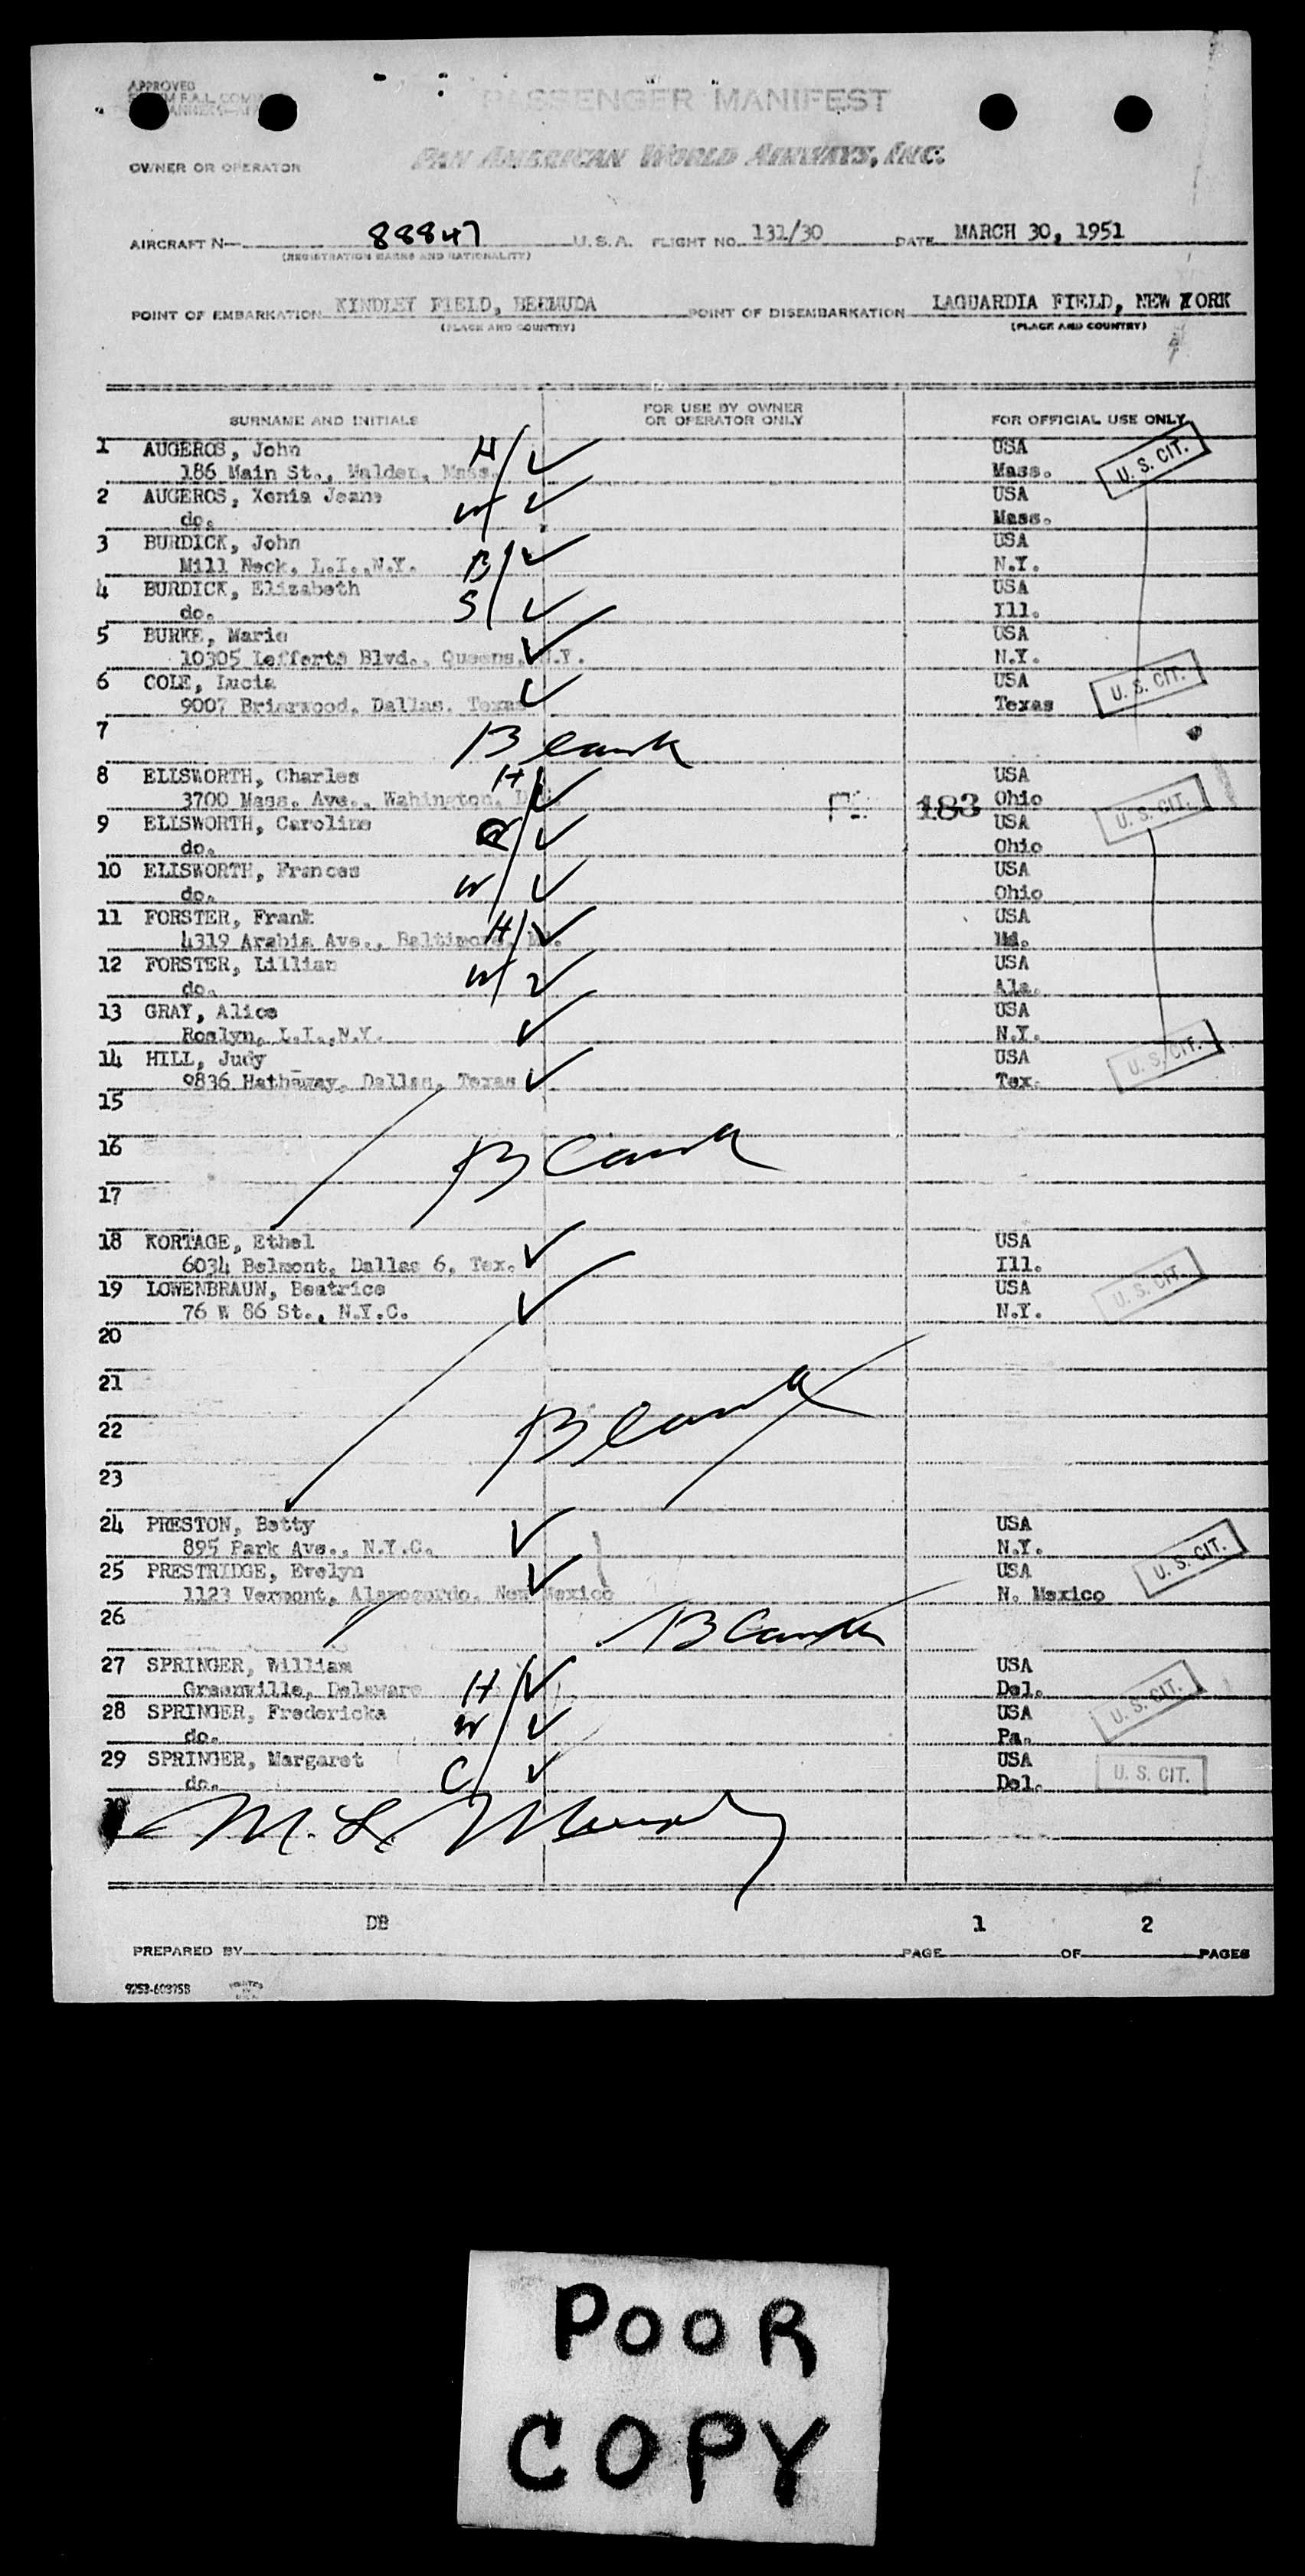 APPROVED
PASSENGER MANIFEST
OWNER OR OPERATOR PAN AMERICAN WORLD AIRWAYS, INC.
AIRCRAFT N— 88847 U.S.A. FLIGHT NO. 131/30 DATE MARCH 30, 1951
(REGISTRATION MARKS AND NATIONALITY)
POINT OF EMBARKATION KINDLEY FIELD, BERMUDA POINT OF DISEMBARKATION LAGUARDIA FIELD, NEW YORK
(PLACE AND COUNTRY) (PLACE AND COUNTRY)
SURNAME AND INITIALS FOR USE BY OWNER OR OPERATOR ONLY FOR OFFICIAL USE ONLY
1 AUGEROS, John H USA
186 Main St., Malden, Mass. Mass. U. S. CIT.
2 AUGEROS, Xenia Jeane W USA
do. Mass.
3 BURDICK, John B USA
Mill Neck, L.I.,N.Y. N.Y.
4 BURDICK, Elizabeth S USA
do. Ill.
5 BURKE, Marie USA
10305 Lefferts Blvd., Queens, N.Y. N.Y.
6 COLE, Lucia USA U. S. CIT.
9007 Briarwood, Dallas, Texas Texas
7 Blank
8 ELLSWORTH, Charles H USA
3700 Mass. Ave., Wahington, 183 Ohio U. S. CIT.
9 ELLSWORTH, Caroline USA
do. Ohio
10 ELLSWORTH, Frances W USA
do. Ohio
11 FORSTER, Frank H USA
4319 Arabia Ave., Baltimore, Md. Md.
12 FORSTER, Lillian W USA
do. Ala.
13 GRAY, Alice USA
Roslyn, L.I.,N.Y. N.Y.
14 HILL, Judy USA U. S. CIT.
9836 Hathaway, Dallas, Texas Tex.
15
16 Blank
17
18 KORTAGE, Ethel USA
6034 Belmont, Dallas 6, Tex. Ill.
19 LOWENBRAUN, Beatrice USA U. S. CIT.
76 W 86 St., N.Y.C. N.Y.
20
21
22 Blank
23
24 PRESTON, Betty USA
895 Park Ave., N.Y.C. N.Y.
25 PRESTRIDGE, Evelyn USA U. S. CIT.
1123 Vermont, Alamogordo, New Mexico N. Mexico
26 Blank
27 SPRINGER, William USA
Greenville, Delaware H Del. U. S. CIT.
28 SPRINGER, Fredericka W USA
do. Pa.
29 SPRINGER, Margaret C USA
do. Del. U. S. CIT.
30
M. L. Murphy
DB 1 2
PREPARED BY PAGE OF PAGES
9253-603758
POOR
COPY